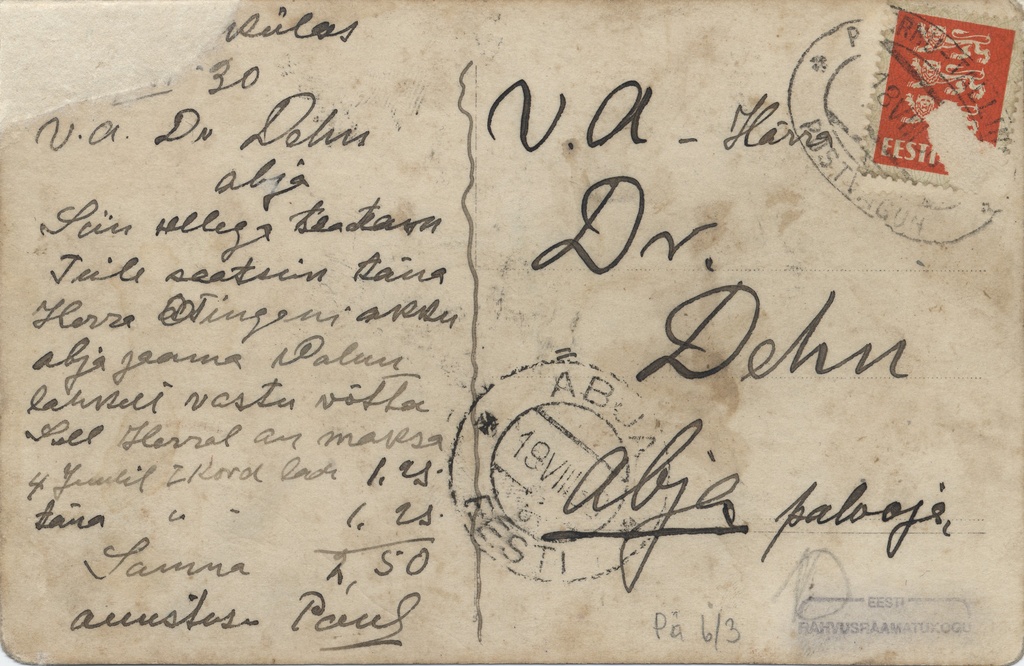 külas
30
V.A. Dr Dehn
abja
Siin sellega teatan
Teile saatsin täna
Herra akku
abja jaama Palun
lahkeli vastu võtta
Sell Herral on maksa
4 Juulil 2 kord lad. 1.25.
täna " - 1.25.
Samma 2,50
austus. Paul
V. A - Härra
Dr.
Dehn
Abja paluoja,
EESTI
POSTVAGUN
ABJA
19 VIII
EESTI
Pä 6/3
EESTI
RAHVUSRAAMATUKOGU